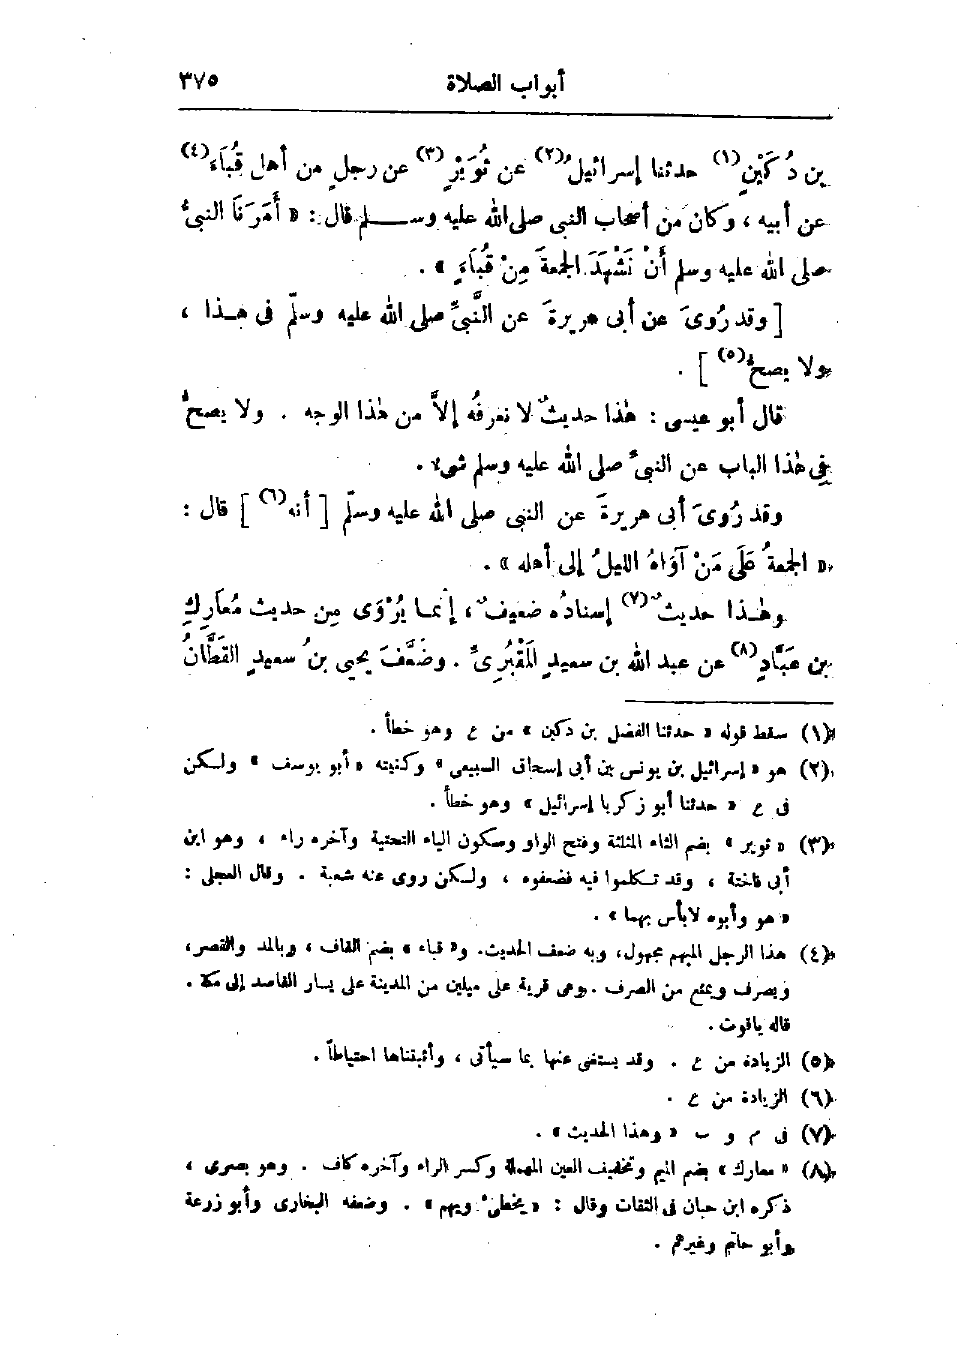 أبواب الصلاة ٣٧٥
بن دُكَيْنٍ(١) حدثنا إسرائيلُ(٢) عن ثُوَيْرٍ(٣) عن رجلٍ من أهل قُبَاءَ(٤)
عن أبيه ، وكان من أصحاب النبي صلى الله عليه وسلم قال : « أَمَرَنَا النبىُّ
صلى الله عليه وسلم أَنْ نَشْهَدَ الجمعةَ مِنْ قُبَاءٍ » .
[ وقد رُوِىَ عن أبى هريرةَ عن النَّبىِّ صلى الله عليه وسلَّم فى هٰذا ،
ولا يصحُّ(٥) ] .
قال أبو عيسى : هٰذا حديثٌ لا نعرفُه إلاَّ من هٰذا الوجه . ولا يصحُّ
فِى هٰذا الباب عن النبىِّ صلى الله عليه وسلم شىء .
وقد رُوِىَ أبى هريرةَ عن النبى صلى الله عليه وسلَّم [ أنه(٦) ] قال :
« الجمعةُ عَلَى مَنْ آوَاهُ الليلُ إلى أهله » .
وهٰذا حديثٌ(٧) إسنادُه ضعيفٌ ، إنما يُرْوَى مِن حديث مُعَارِكِ
بن عَبَّادٍ(٨) عن عبد الله بن سعيدٍ المَقْبُرِىِّ . وضَعَّفَ يحيى بنُ سعيدٍ القَطَّانُ
(١) سقط قوله « حدثنا الفضل بن دكين » من ع وهو خطأ .
(٢) هو « إسرائيل بن يونس بن أبى إسحاق السبيعى » وكنيته « أبو يوسف » ولكن
فى ع « حدثنا أبو زكريا إسرائيل » وهو خطأ .
(٣) « ثوير » بضم الثاء المثلثة وفتح الواو وسكون الياء التحتية وآخره راء ، وهو ابن
أبى فاختة ، وقد تكلموا فيه فضعفوه ، ولكن روى عنه شعبة . وقال العجلى :
« هو وأبوه لابأس بهما » .
(٤) هذا الرجل المبهم مجهول، وبه ضعف الحديث. و« قباء » بضم القاف ، وبالمد والقصر،
ويصرف ويمنع من الصرف . وهى قرية على ميلين من المدينة على يسار القاصد إلى مكة .
قاله ياقوت .
(٥) الزيادة من ع . وقد يستغنى عنها بما سيأتى ، وأثبتناها احتياطاً .
(٦) الزيادة من ع .
(٧) فى م و ب « وهذا الحديث » .
(٨) « معارك » بضم الميم وتخفيف العين المهملة وكسر الراء وآخره كاف . وهو بصرى ،
ذكره ابن حبان فى الثقات وقال : « يخطئ ويهم » . وضعفه البخارى وأبو زرعة
وأبو حاتم وغيرهم .